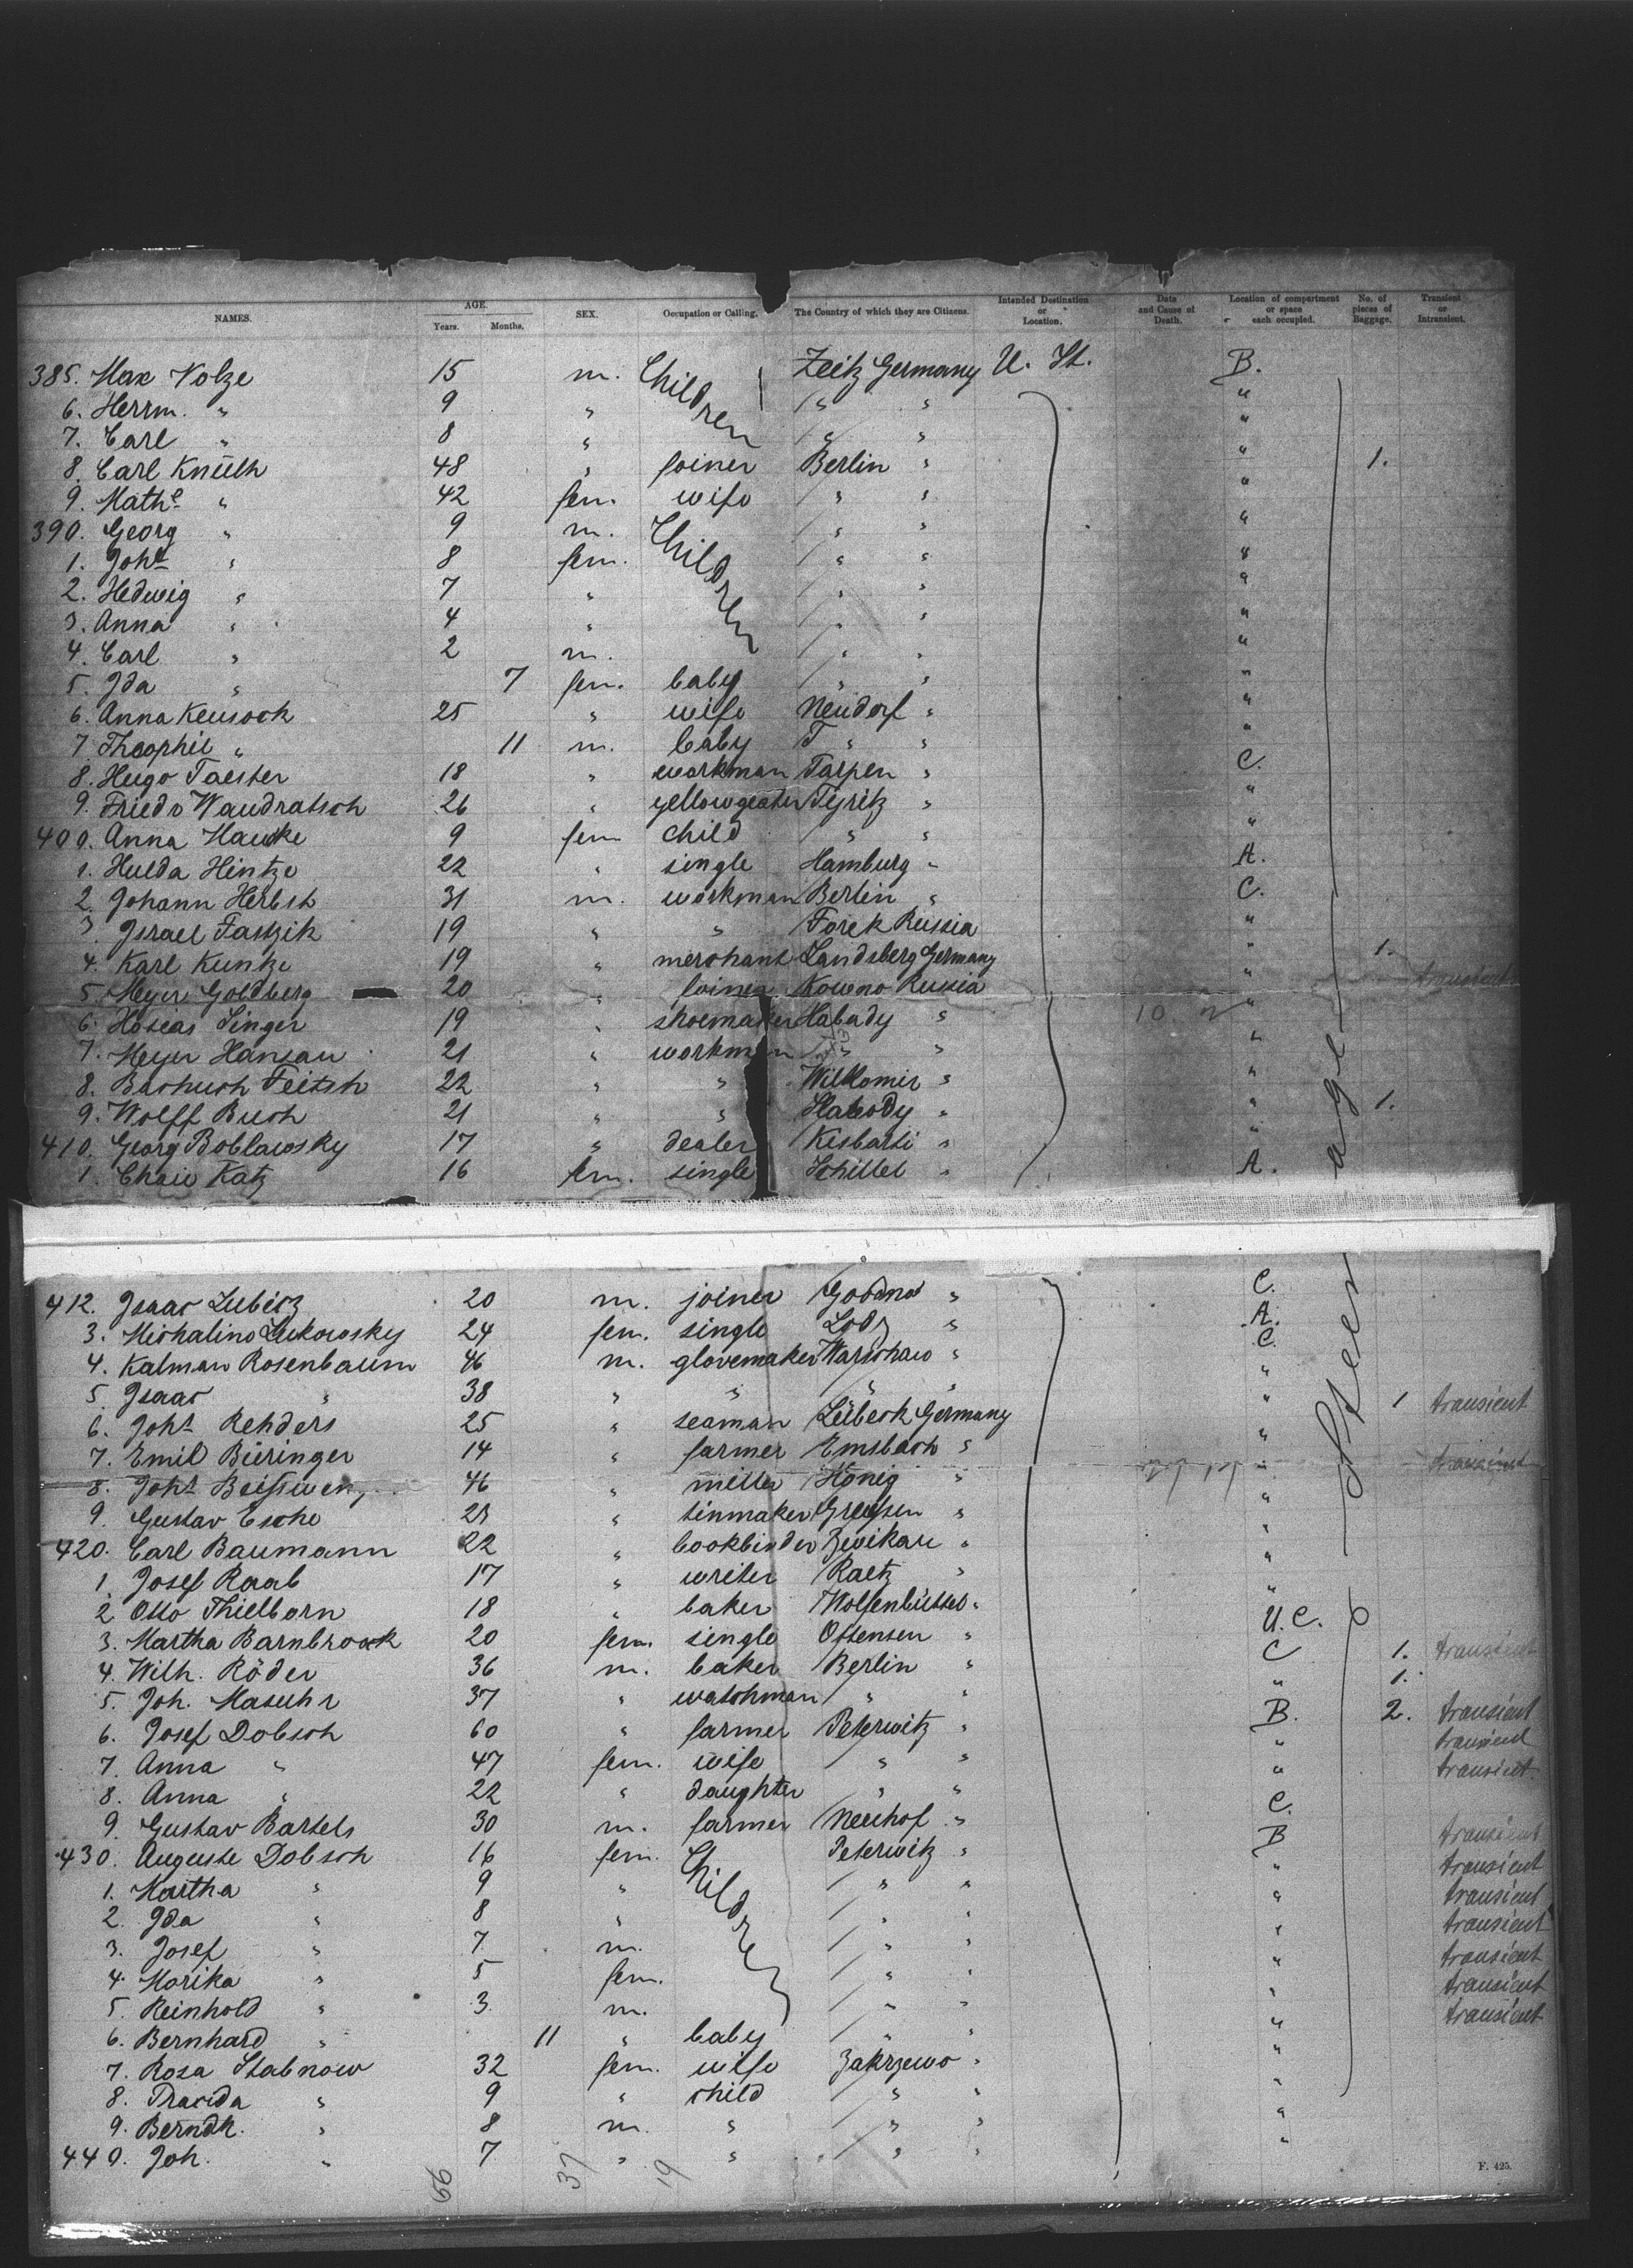 NAMES. AGE. Years. Months. SEX. Occupation or Calling. The Country of which they are Citizens. Intended Destination or Location. Date and Cause of Death. Location of compartment or space each occupied. No. of pieces of Baggage. Transient or Intransient.
385. Max Nolze 15 m. Children Zeitz Germany U. St. B.
6. Herrm. " 9 " " " "
7. Carl " 8 " " " "
8. Carl Knüth 48 " joiner Berlin " " 1.
9. Math.e " 42 fem. wife " " "
390. Georg " 9 m. Children " " "
1. Joh.e " 8 fem. " " "
2. Hedwig " 7 " " " "
3. Anna " 4 " " " "
4. Carl " 2 m. " " "
5. Ida " 7 fem. baby " " "
6. Anna Keusock 25 " wife Neudorf " "
7. Theophil " 11 m. baby " " "
8. Hugo Taester 18 " workman Tarpen " C.
9. Friedr Waudratsch 26 " Pyritz " "
400. Anna Hauke 9 fem child " " "
1. Hulda Hintze 22 " single Hamburg " A.
2. Johann Herbst 31 m. workman Berlin " C.
3. Israel Fastzik 19 " " Forek Russia "
4. Karl Kuntze 19 " merchant Landsberg Germany " 1.
5. Meyer Goldberg 20 " joiner Kowno Russia " transient
6. Hosias Singer 19 " shoemaker Habady " "
7. Meyer Hansau 21 " workman " " "
8. Barhuch Feitsh 22 " " Wilkomir " "
9. Wolff Buch 21 " " Slabody " " 1.
410. Georg Boblawsky 17 " dealer Kisbarti " "
1. Chaie Katz 16 fem. single Schillel " A.
412. Isaac Lubicz 20 m. joiner Godno " C.
3. Michaline Lukowsky 24 fem. single Lodz " A.
4. Kalman Rosenbaum 46 m. glovemaker Warschaw " C.
5. Isaac " 38 " " " " "
6. Joh.s Rehders 25 " seaman Lübeck Germany " 1 transient
7. Emil Büringer 14 " farmer Emsbach " "
8. Joh.s 46 " miller König " " transient
9. Gustav Esche 28 " tinmaker Greussen " "
420. Carl Baumann 22 " bookbinder Zwikau " "
1. Josef Raab 17 " writer Raetz " "
2. Otto Thielborn 18 " baker Wolfenbüttel " "
3. Martha Barnbrook 20 fem. single Ottensen " U.C.
4. Wilh. Röder 36 m. baker Berlin " C 1. transient
5. Joh. Masuhr 37 " watchman " " " 1.
6. Josef Dobsch 60 " farmer Peterwitz " B. 2. transient
7. Anna " 47 fem. wife " " " transient
8. Anna " 22 " daughter " " " transient
9. Gustav Bartels 30 m. farmer Neuhof " C.
430. Auguste Dobsch 16 fem. Children Peterwitz " B transient
1. Martha " 9 " " " " transient
2. Ida " 8 " " " " transient
3. Josef " 7 m. " " " transient
4. Marika " 5 fem. " " " transient
5. Reinhold " 3 m. " " " transient
6. Bernhard " 11 " baby " " " transient
7. Rosa Stabnow 32 fem. wife Zakrzewo " "
8. " 9 " child " " "
9. Berndh. " 8 m. " " " "
440. Joh. " 7 " " " " "
Steerage
66 37 19
F. 425.